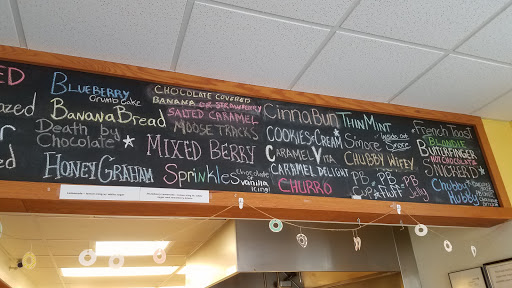 ED
azed
er
BLUEBERRY
crumb cake
BANANA BREAD
Death by
Chocolate*
HONEY GRAHAM
CHOCOLATE COVERED
BANANA OR STRAWBERRY
SALTED CARAMEL
MOOSE TRACKS
MIXED BERRY
SPRinkLeS chocolate
vanilla
icing!
CinnaBUN
COOKIES & CREAM
CARAMEL VITA
CARAMEL DELIGHT
CHURRO
THIN MINT
S'more inside out
S'more
CHUBBY WIFEY
PB Cup
PB Fluff
PB Jelly
French Toast
BLONDIE
BUTTERFINGER
HOT CHOCOLATE
SNICKER'D*
Chubby
Hubby